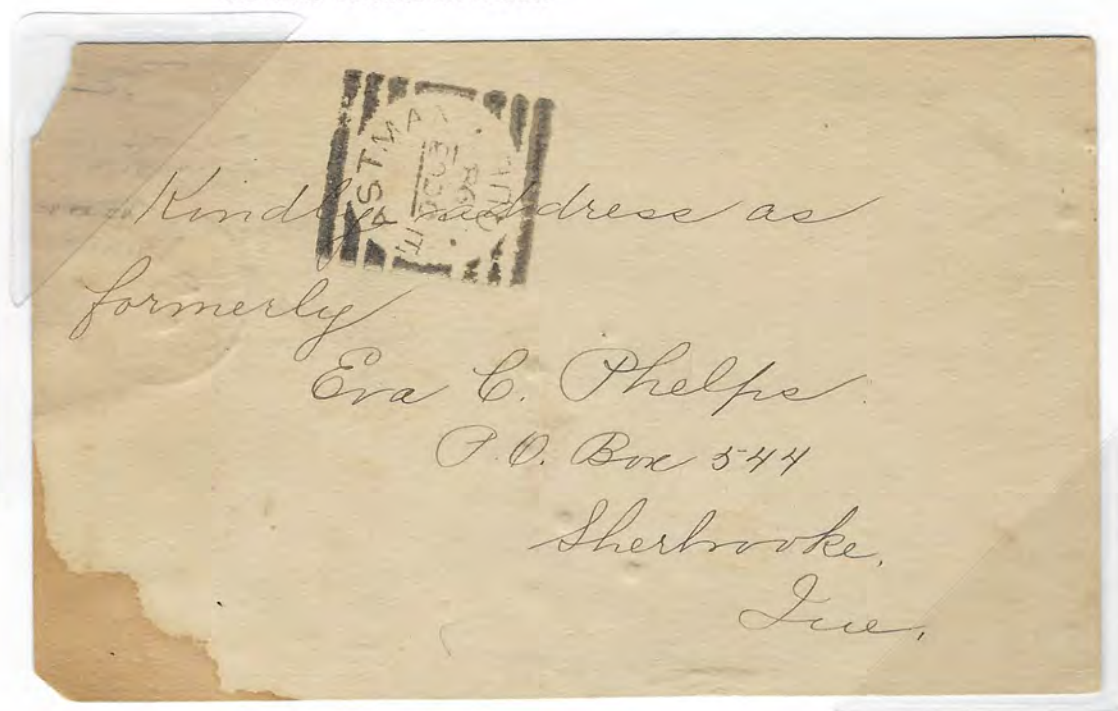 Kindly address as
formerly
Eva C. Phelps
P.O. Box 544
Sherbrooke,
Que,